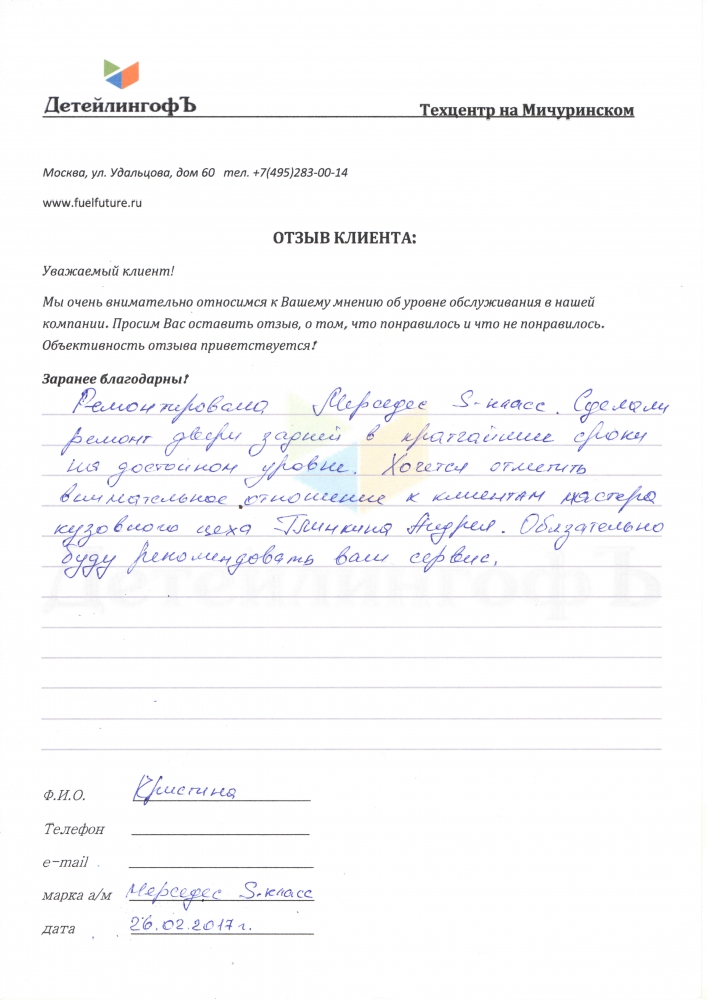 ДетейлингофЪ
Техцентр на Мичуринском
Москва, ул. Удальцова, дом 60 тел. +7(495)283-00-14
www.fuelfuture.ru
ОТЗЫВ КЛИЕНТА:
Уважаемый клиент!
Мы очень внимательно относимся к Вашему мнению об уровне обслуживания в нашей
компании. Просим Вас оставить отзыв, о том, что понравилось и что не понравилось.
Объективность отзыва приветствуется!
Заранее благодарны!
Ремонтировала Мерседес S-класс. Сделали
ремонт двери задней в кратчайшие сроки
на достойном уровне. Хочется отметить
внимательное отношение к клиентам мастера
кузовного цеха Глинкина Андрея. Обязательно
буду рекомендовать ваш сервис.
ДетейлингофЪ
Ф.И.О. Кристина
Телефон
e-mail
марка а/м Мерседес S-класс
дата 26.02.2017г.